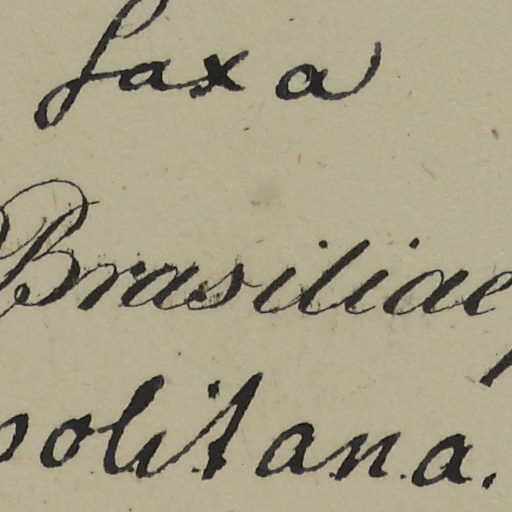 saxa
Brasiliae
politana.